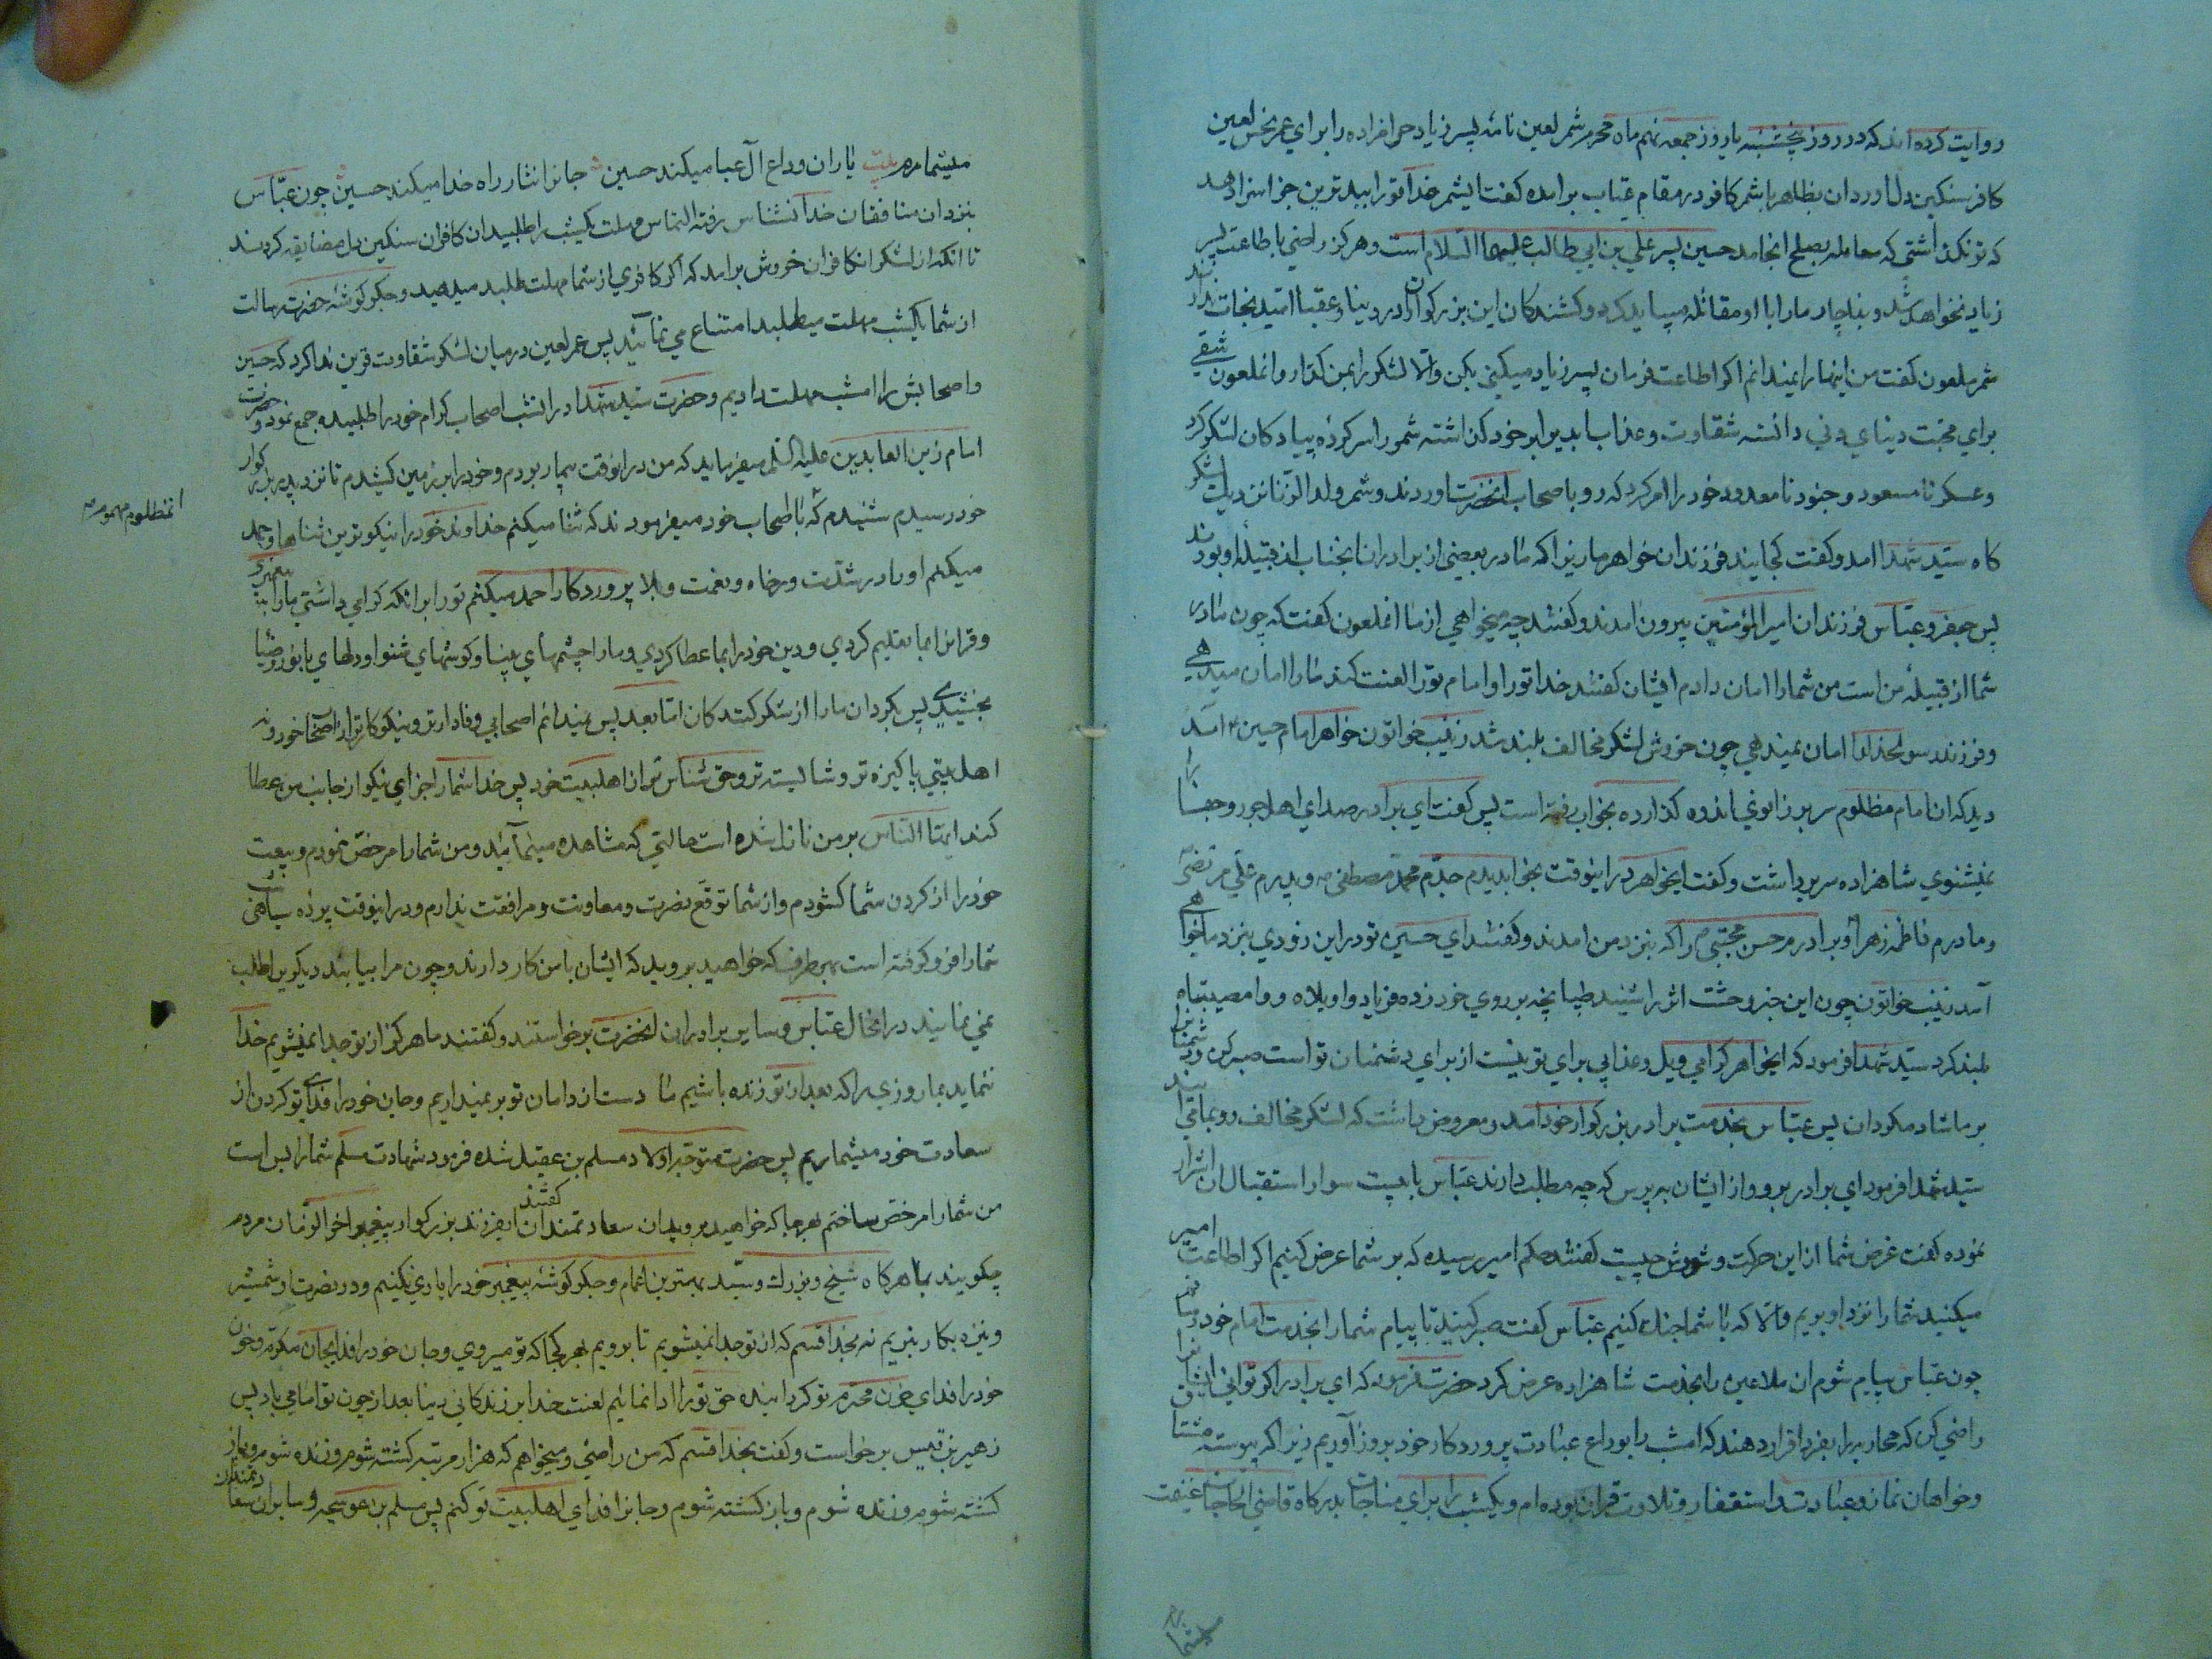 روایت کرده اند که در روز پنجشنبه یا روز جمعه نهم ماه محرم شمر لعین نامه پسر زیاد حرامزاده را برای عمر نحس لعین
کافر سنکین دل اورد ان بظاهر با شمر کافر در مقام عتاب برامده کفت ایشمر خدا تو را ببدترین جزا سزا دهد
که تو نکذاشتی که معامله بصلح انجامد حسین پسر علی بن ابی طالب علیهما السلام است و هرکز راضی باطاعت پسر
زیاد نخواهد شد و بناچار ما را با او مقاتله میباید کرد و کشندکان این بزرکوار را در دنیا و عقبا امید نجات نباشد
شمر ملعون کفت من اینها را نمیدانم اکر اطاعت فرمان پسر زیاد میکنی بکن والا لشکر را بمن کذار و انملعون شقی
برای محبت دنیای دنی دانسته شقاوت و عذاب ابد بر خود کذاشته شمر را سر کرده پیادکان لشکر کرد
و عسکر نامسعود و جنود نامعدود خود را امر کرد که رو باصحاب انحضرت اوردند و شمر ولد الزنا نزدیک لشکر
کاه سید شهدا امد و کفت کجایند فرزندان خواهر ما زیرا که مادر بعضی از برادران انجناب از قبیلهٔ او بودند
پس جعفر و عباس فرزندان امیر المؤمنین بیرون امدند و کفتند چه میخواهی از ما انملعون کفت که چون مادر
شما از قبیلهٔ من است من شما را امان دادم ایشان کفتند خدا تو را و امام تو را لعنت کند ما را امان میدهی
و فرزند رسولخدا را امان نمیدهی چون خروش لشکر مخالف بلند شد زینب خواتون خواهر امام حسین امد
دید که ان امام مظلوم سر بر زانوی اندوه کذارده بخواب رفته است پس کفت ای برادر صدای اهل جور و جفا را
نمیشنوی شاهزاده سر برداشت و کفت ایخواهر در اینوقت بخواب دیدم جدم محمد مصطفی و پدرم علی مرتضی
و مادرم فاطمه زهرا و برادرم حسن مجتبی را که بنزد من امدند و کفتند ای حسین تو در این زودی بنزد ما خواهی
آمد زینب خواتون چون این خبر وحشت اثر را شنید طپانچه بر روی خود زده فریاد واویلاه و وامصیبتاه
بلند کرد سید شهدا فرمود که ایخواهر کرامی ویل و عذابی برای تو نیست از برای دشمنان تو است صبر کن و دشمنان را
بر ما شاد مکردان پس عباس بخدمت برادر بزرکوار خود امده معروض داشت که لشکر مخالف رو بما می ایند
سید شهدا فرمود ای برادر برو و از ایشان بپرس که چه مطلب دارند عباس با بیست سوار استقبال ان اشرار
نموده کفت غرض شما از این حرکت و شورش چیست کفتند حکم امیر رسیده که بر شما عرض کنیم اکر اطاعت امیر
میکنید شما را نزد او بریم والا که با شما جنک کنیم عباس کفت صبر کنید تا پیام شما را بخدمت امام خود رسانم
چون عباس پیام شوم ان ملاعین را بخدمت شاهزاده عرض کرد حضرت فرمود که ای برادر اکر توانی
راضی کن که محاربه را بفردا قرار دهند که امشب را بوداع عبادت پروردکار خود بروز آوریم زیرا که پیوسته مشتاق
و خواهان نماز و عبادت و استغفار و تلاوت قران بوده ام و یکشب را برای مناجات بدرکاه قاضی الحاجات غنیمت
میشما
میشمارم یاران وداع آل عبا میکند حسین جانرا نثار راه خدا میکند حسین چون عباس
بنزد ان منافقان خدا نشناس رفته التماس مهلت یکشب را طلبید ان کافران سنکین دل مضایقه کردند
تا انکه از لشکر ان کافران خروش برامد که اکر کافری از شما مهلت طلبد میدهید و جکرکوشهٔ حضرت رسالت
از شما یکشب مهلت میطلبد امتناع می نمائید پس عمر لعین در میان لشکر شقاوت قرین ندا کرد که حسین
و اصحابش را امشب مهلت دادیم و حضرت سید شهدا در انشب اصحاب کرام خود را طلبیده جمع نمود و حضرت
امام زین العابدین علیه السلام میفرماید که من در انوقت بیمار بودم و خود را بر زمین کشیدم تا نزد پدر بزرکوار
انمظلوم مهموم
خود رسیدم شنیدم که باصحاب خود میفرمودند که ثنا میکنم خداوند خود را نیکوترین ثناها و حمد
میکنم او را در شدت و رخاه و نعمت و بلا پروردکارا حمد میکنم تو را بر انکه کرامی داشتی ما را به پیغمبری
و قران را بما تعلیم کردی و دین خود را بما عطا کردی و ما را چشمهای بینا و کوشهای شنوا و دلهای با نور و ضیا
بخشیدی پس بکردان ما را از شکر کنندکان اما بعد پس نمیدانم اصحابی وفادارتر و نیکوکارتر از اصحاب خود و نه
اهل بیتی پاکیزه تر و شایسته تر و حق شناس تر از اهلبیت خود پس خدا شما را جزای نیکو از جانب من عطا
کند ایها الناس بر من نازل شده است حالتی که مشاهده مینمائید و من شما را مرخص نمودم و بیعت
خود را از کردن شما کشودم و از شما توقع نصرت و معاونت و مرافقت ندارم و در اینوقت پرده سیاهی
شما را فرو کرفته است بهر طرف که خواهید بروید که ایشان با من کار دارند و چون مرا بیابند دیکری را طلب
نمی نمایند در انحال عباس و سایر برادران انحضرت برخواستند و کفتند ما هرکز از تو جدا نمیشویم خدا
ننماید بما روزی را که بعد از تو زنده باشیم ما دست از دامان تو بر نمیداریم و جان خود را فدای تو کردن از
سعادت خود میشماریم پس حضرت متوجه اولاد مسلم بن عقیل شده فرمود شهادت مسلم شما را بس است
من شما را مرخص ساختم بهر جا که خواهید بروید ان سعادتمندان کفتند ایفرزند بزرکوار پیغمبر اخر الزمان مردم
چکویند بما هرکاه شیخ و بزرک و سید بهترین اعمام و جکرکوشهٔ پیغمبر خود را یاری نکنیم و در نصرت او شمشیر
و نیزه بکار نبریم نه بخدا قسم که از تو جدا نمیشویم تا برویم بهر کجا که تو میروی و جان خود را فدای جان مکرم و خون
خود را فدای خون محترم تو کردانیده حق تو را ادا نمائیم لعنت خدا بر زندکانی دنیا بعد از چون تو امامی باد پس
زهیر بن قیس برخواست و کفت بخدا قسم که من راضی و میخواهم که هزار مرتبه کشته شوم و زنده شوم و باز
کشته شوم و زنده شوم و باز کشته شوم و جانرا فدای اهلبیت تو کنم پس مسلم بن عوسجه و سایر ان سعادتمندان